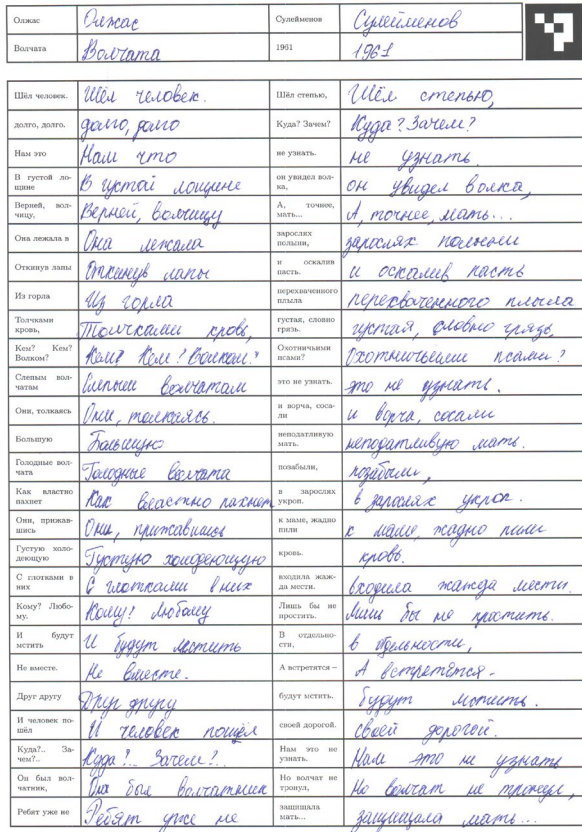 Олжас Олжас Сулейменов Сулейменов
Волчата Волчата 1961 1961
Шёл человек. Шёл человек. Шёл степью, Шёл степью,
долго, долго. долго, долго Куда? Зачем? Куда? Зачем?
Нам это Нам что не узнать. не узнать.
В густой ло-
щине В густой лощине он увидел вол-
ка, он увидел волка,
Верней, вол-
чицу, Верней, волчицу А, точнее,
мать... А, точнее, мать...
Она лежала в Она лежала зарослях
полыни, зарослях полыни
Откинув лапы Откинув лапы и оскалив
пасть. и оскалив пасть
Из горла Из горла перехваченного
плыла перехваченного плыла
Толчками
кровь, Толчками кровь, густая, словно
грязь. густая, словно грязь.
Кем? Кем?
Волком? Кем? Кем? Волком? Охотничьими
псами? Охотничьими псами?
Слепым вол-
чатам Слепым волчатам это не узнать. это не узнать.
Они, толкаясь Они, толкаясь. и ворча, соса-
ли и ворча, сосали
Большую Большую неподатливую
мать. неподатливую мать.
Голодные вол-
чата Голодные волчата позабыли, позабыли,
Как властно
пахнет Как властно пахнет в зарослях
укроп. в зарослях укроп.
Они, прижав-
шись Они, прижавшись к маме, жадно
пили к маме, жадно пили
Густую холо-
деющую Густую холодеющую кровь. кровь.
С глотками в
них С глотками в них входила жаж-
да мести. входила жажда мести.
Кому? Любо-
му. Кому? Любому Лишь бы не
простить. Лишь бы не простить.
И будут
мстить И будут мстить В отдельно-
сти, в отдельности,
Не вместе. Не вместе. А встретятся – А встретятся -
Друг другу Друг другу будут мстить. будут мстить.
И человек по-
шёл И человек пошёл своей дорогой. своей дорогой.
Куда?.. За-
чем?.. Куда?.. Зачем?.. Нам это не
узнать. Нам это не узнать
Он был вол-
чатник, Он был волчатник Но волчат не
тронул, Но волчат не тронул,
Ребят уже не Ребят уже не защищала
мать... защищала мать...